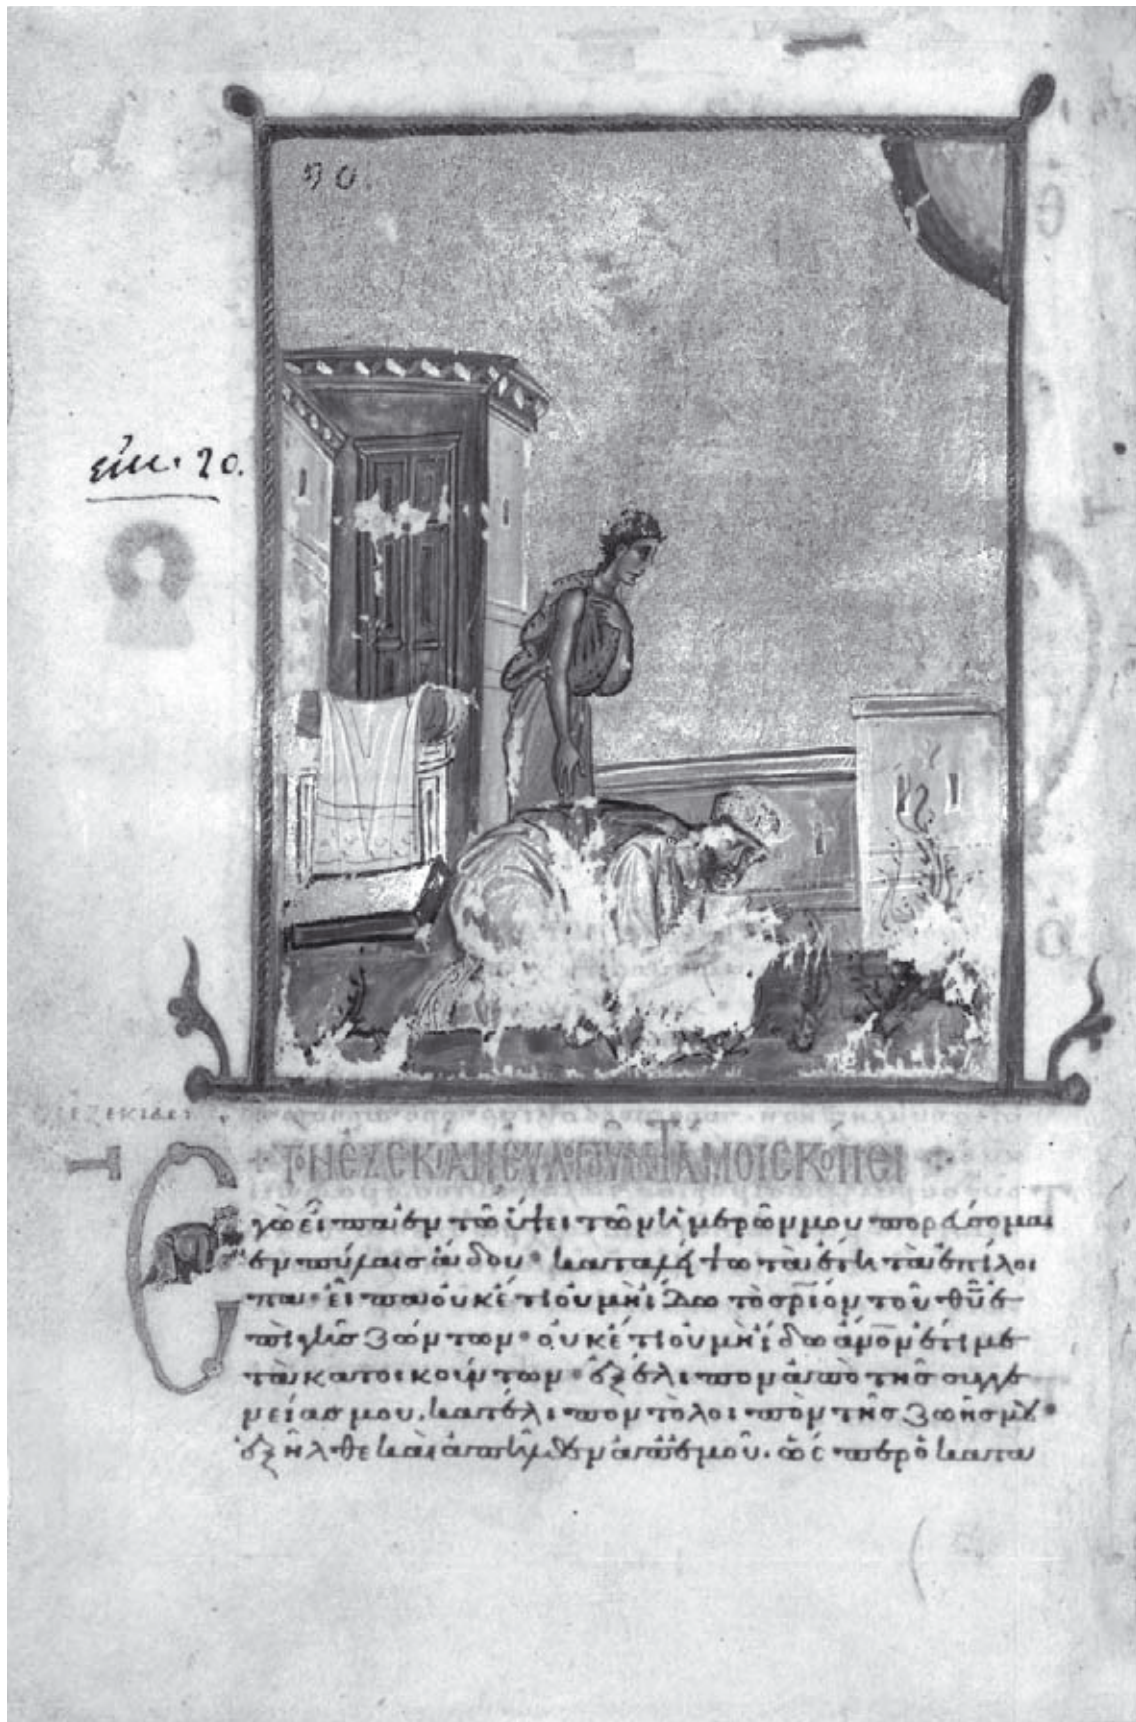 70.
εἰκ. 70.
ΤΟΝ ΕΖΕΚΙΑΝ ΕΥΛΟΓΟΥΝΤΑ ΜΟΙ ΣΚΟΠΕΙ
Ἐγὼ εἶπα ἐν τῶ ὕψει τῶν ἡμερῶν μου πορεύσομαι
ἐν πύλαις ἅδου· καταλείψω τὰ ἔτη τὰ ἐπίλοι
πα· εἶπα οὐκέτι οὐ μὴ ἴδω τὸ σρ̅ιον τοῦ θ̅υ̅ ἐ
πὶ γῆς ζώντων· οὐκέτι οὐ μὴ ἴδω ἄ̅ν̅ο̅ν̅ ἔτι με
τὰ κατοικούντων· ἐξέλιπον ἀπὸ τῆς συγγε
νείας μου. κατέλιπον τὸ λοιπὸν τῆς ζωῆς μου·
ἐξῆλθε καὶ ἀπῆλθεν ἀπ' ἐμοῦ. ὥσπερ ὁ κατα